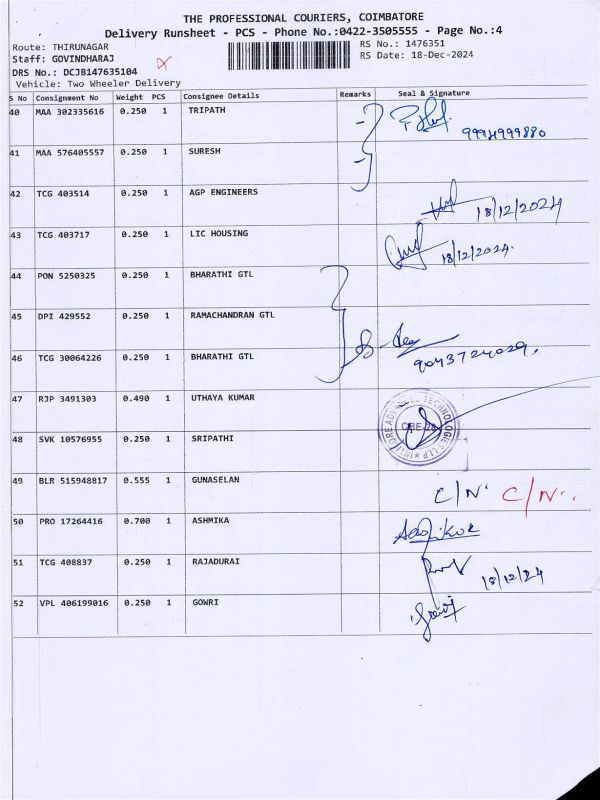 THE PROFESSIONAL COURIERS, COIMBATORE
Delivery Runsheet - PCS - Phone No.:0422-3505555 - Page No.:4
Route: THIRUNAGAR RS No.: 1476351
Staff: GOVINDHARAJ RS Date: 18-Dec-2024
DRS No.: DCJB147635104
Vehicle: Two Wheeler Delivery
S No Consignment No Weight PCS Consignee Details Remarks Seal & Signature
40 MAA 302335616 0.250 1 TRIPATH
9994999880
41 MAA 576405557 0.250 1 SURESH
42 TCG 403514 0.250 1 AGP ENGINEERS
18/12/2024
43 TCG 403717 0.250 1 LIC HOUSING
18/12/2024.
44 PON 5250325 0.250 1 BHARATHI GTL
45 DPI 429552 0.250 1 RAMACHANDRAN GTL
46 TCG 30064226 0.250 1 BHARATHI GTL
9043724029.
47 RJP 3491303 0.490 1 UTHAYA KUMAR
48 SVK 10576955 0.250 1 SRIPATHI
49 BLR 515948817 0.555 1 GUNASELAN
C/N. C/N..
50 PRO 17264416 0.700 1 ASHMIKA
51 TCG 408837 0.250 1 RAJADURAI
18/12/24
52 VPL 406199016 0.250 1 GOWRI